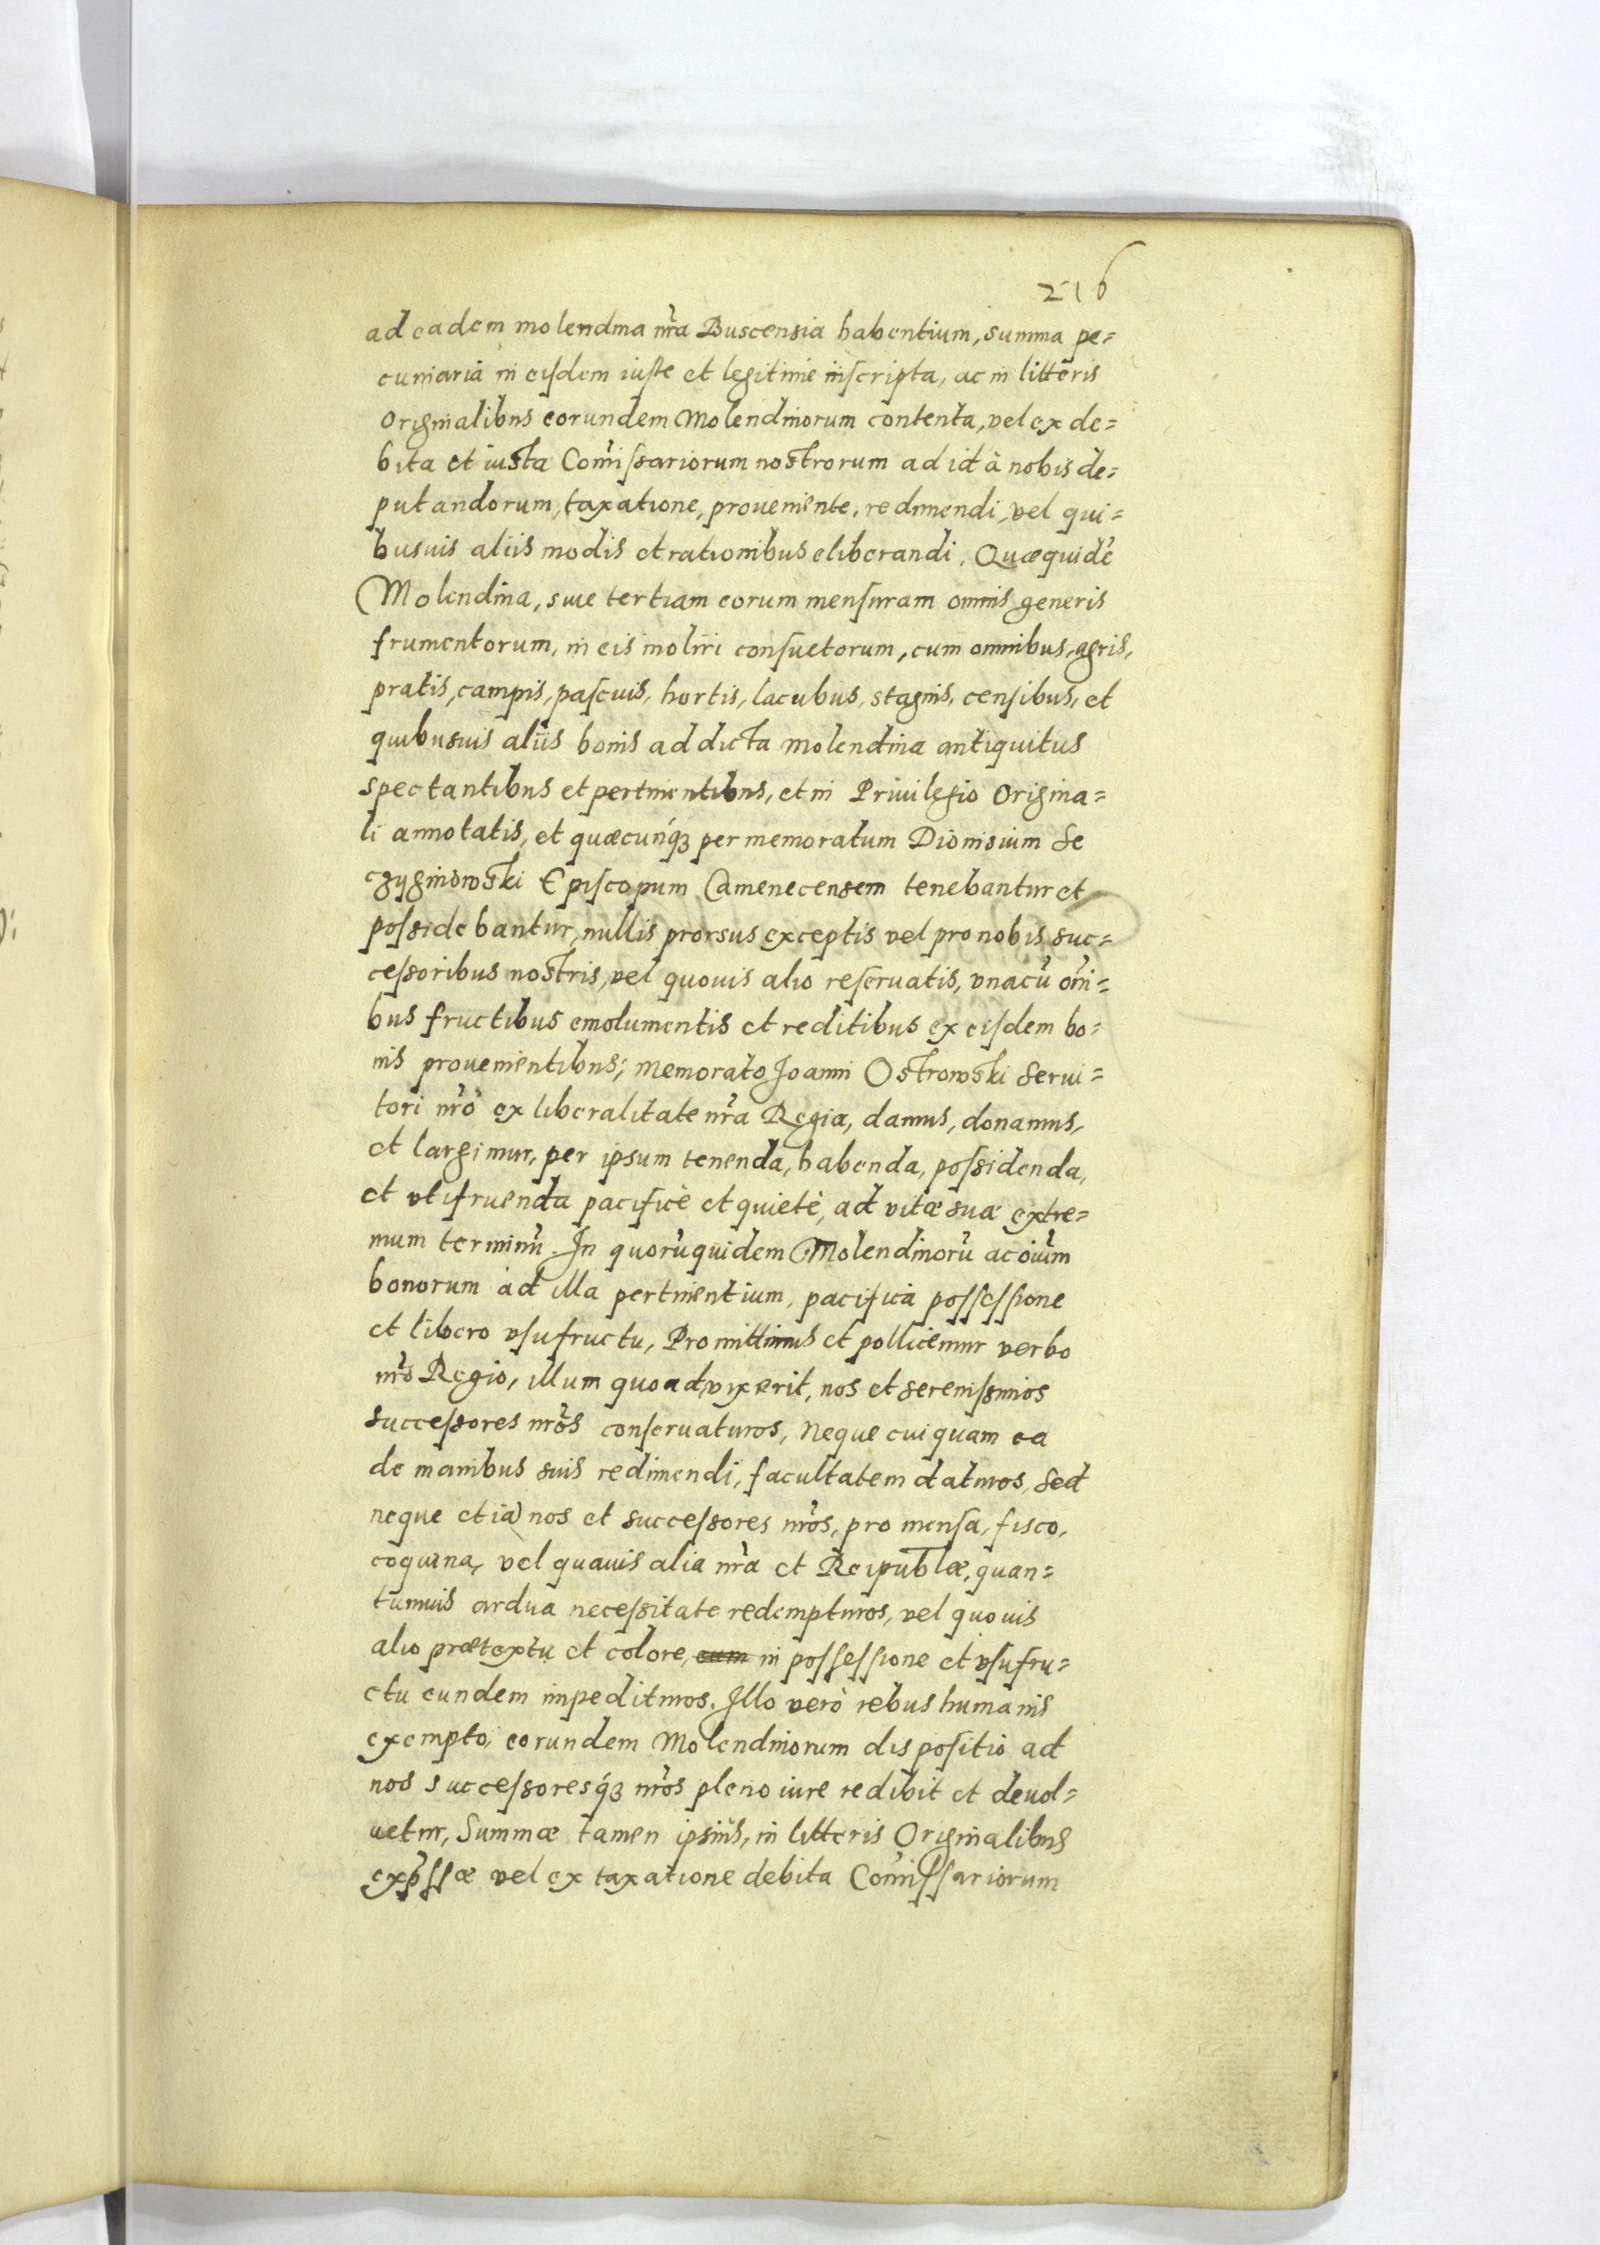 216
ad eadem molendina nr̃a Buscensia habentium, summa pe=
cuniaria in eisdem iuste et legitime inscripta, ac in litteris
Originalibus eorundem Molendinorum contenta, vel ex de=
bita et iusta Com̃issariorum nostrorum ad id à nobis de=
putandorum, taxatione, proueniente, redimendi, vel qui=
busuis aliis modis et rationibus eliberandi. Quæquidẽ
Molendina, siue tertiam eorum mensuram omnis generis
frumentorum, in eis moliri consuetorum, cum omnibus, agris,
pratis, campis, pascuis, hortis, lacubus, stagnis, censibus, et
quibusuis aliis bonis ad dicta molendina antiquitus
spectantibus et pertinentibus, et in Priuilegio Origina=
li annotatis, et quæcunq́ʒ per memoratum Dionisium Se
cygniowski Episcopum Camenecensem tenebantur et
possidebantur, nullis prorsus exceptis vel pro nobis suc=
cessoribus nostris, vel quouis alio reseruatis, vnacũ om̃i=
bus fructibus emolumentis et reditibus ex eisdem bo=
nis prouenientibus; memorato Joanni Ostrowski Serui=
tori nr̃o ex liberalitate nr̃a Regia, damus, donamus,
et largimur, per ipsum tenenda, habenda, possidenda,
et vtifruenda pacificè et quietè, ad vitæ suæ extre=
mum terminũ. In quorũquidem Molendinorũ ac oiũm
bonorum ad illa pertinentium, pacifica possessione
et libero vsufructu, Promittimus et pollicemur verbo
nr̃o Regio, illum quoad vixerit, nos et serenissimios
successores nr̃os conseruaturos, Neque cuiquam ea
de manibus suis redimendi, facultatem daturos, Sed
neque etiã nos et successores nr̃os, pro mensa, fisco,
coquina, vel quauis alia nr̃a et Reipublæ, quan=
tumuis ardua necessitate redempturos, vel quouis
alio prætextu et colore, cum in possessione et vsufru=
ctu eundem impedituros. Illo verò rebus humanis
exempto, eorundem Molendinorum dispositio ad
nos successoresq́ʒ nr̃os pleno iure redibit et deuol=
uetur, Summæ tamen ipsius, in litteris Originalibus
exp̃ssæ vel ex taxatione debita Com̃issariorum